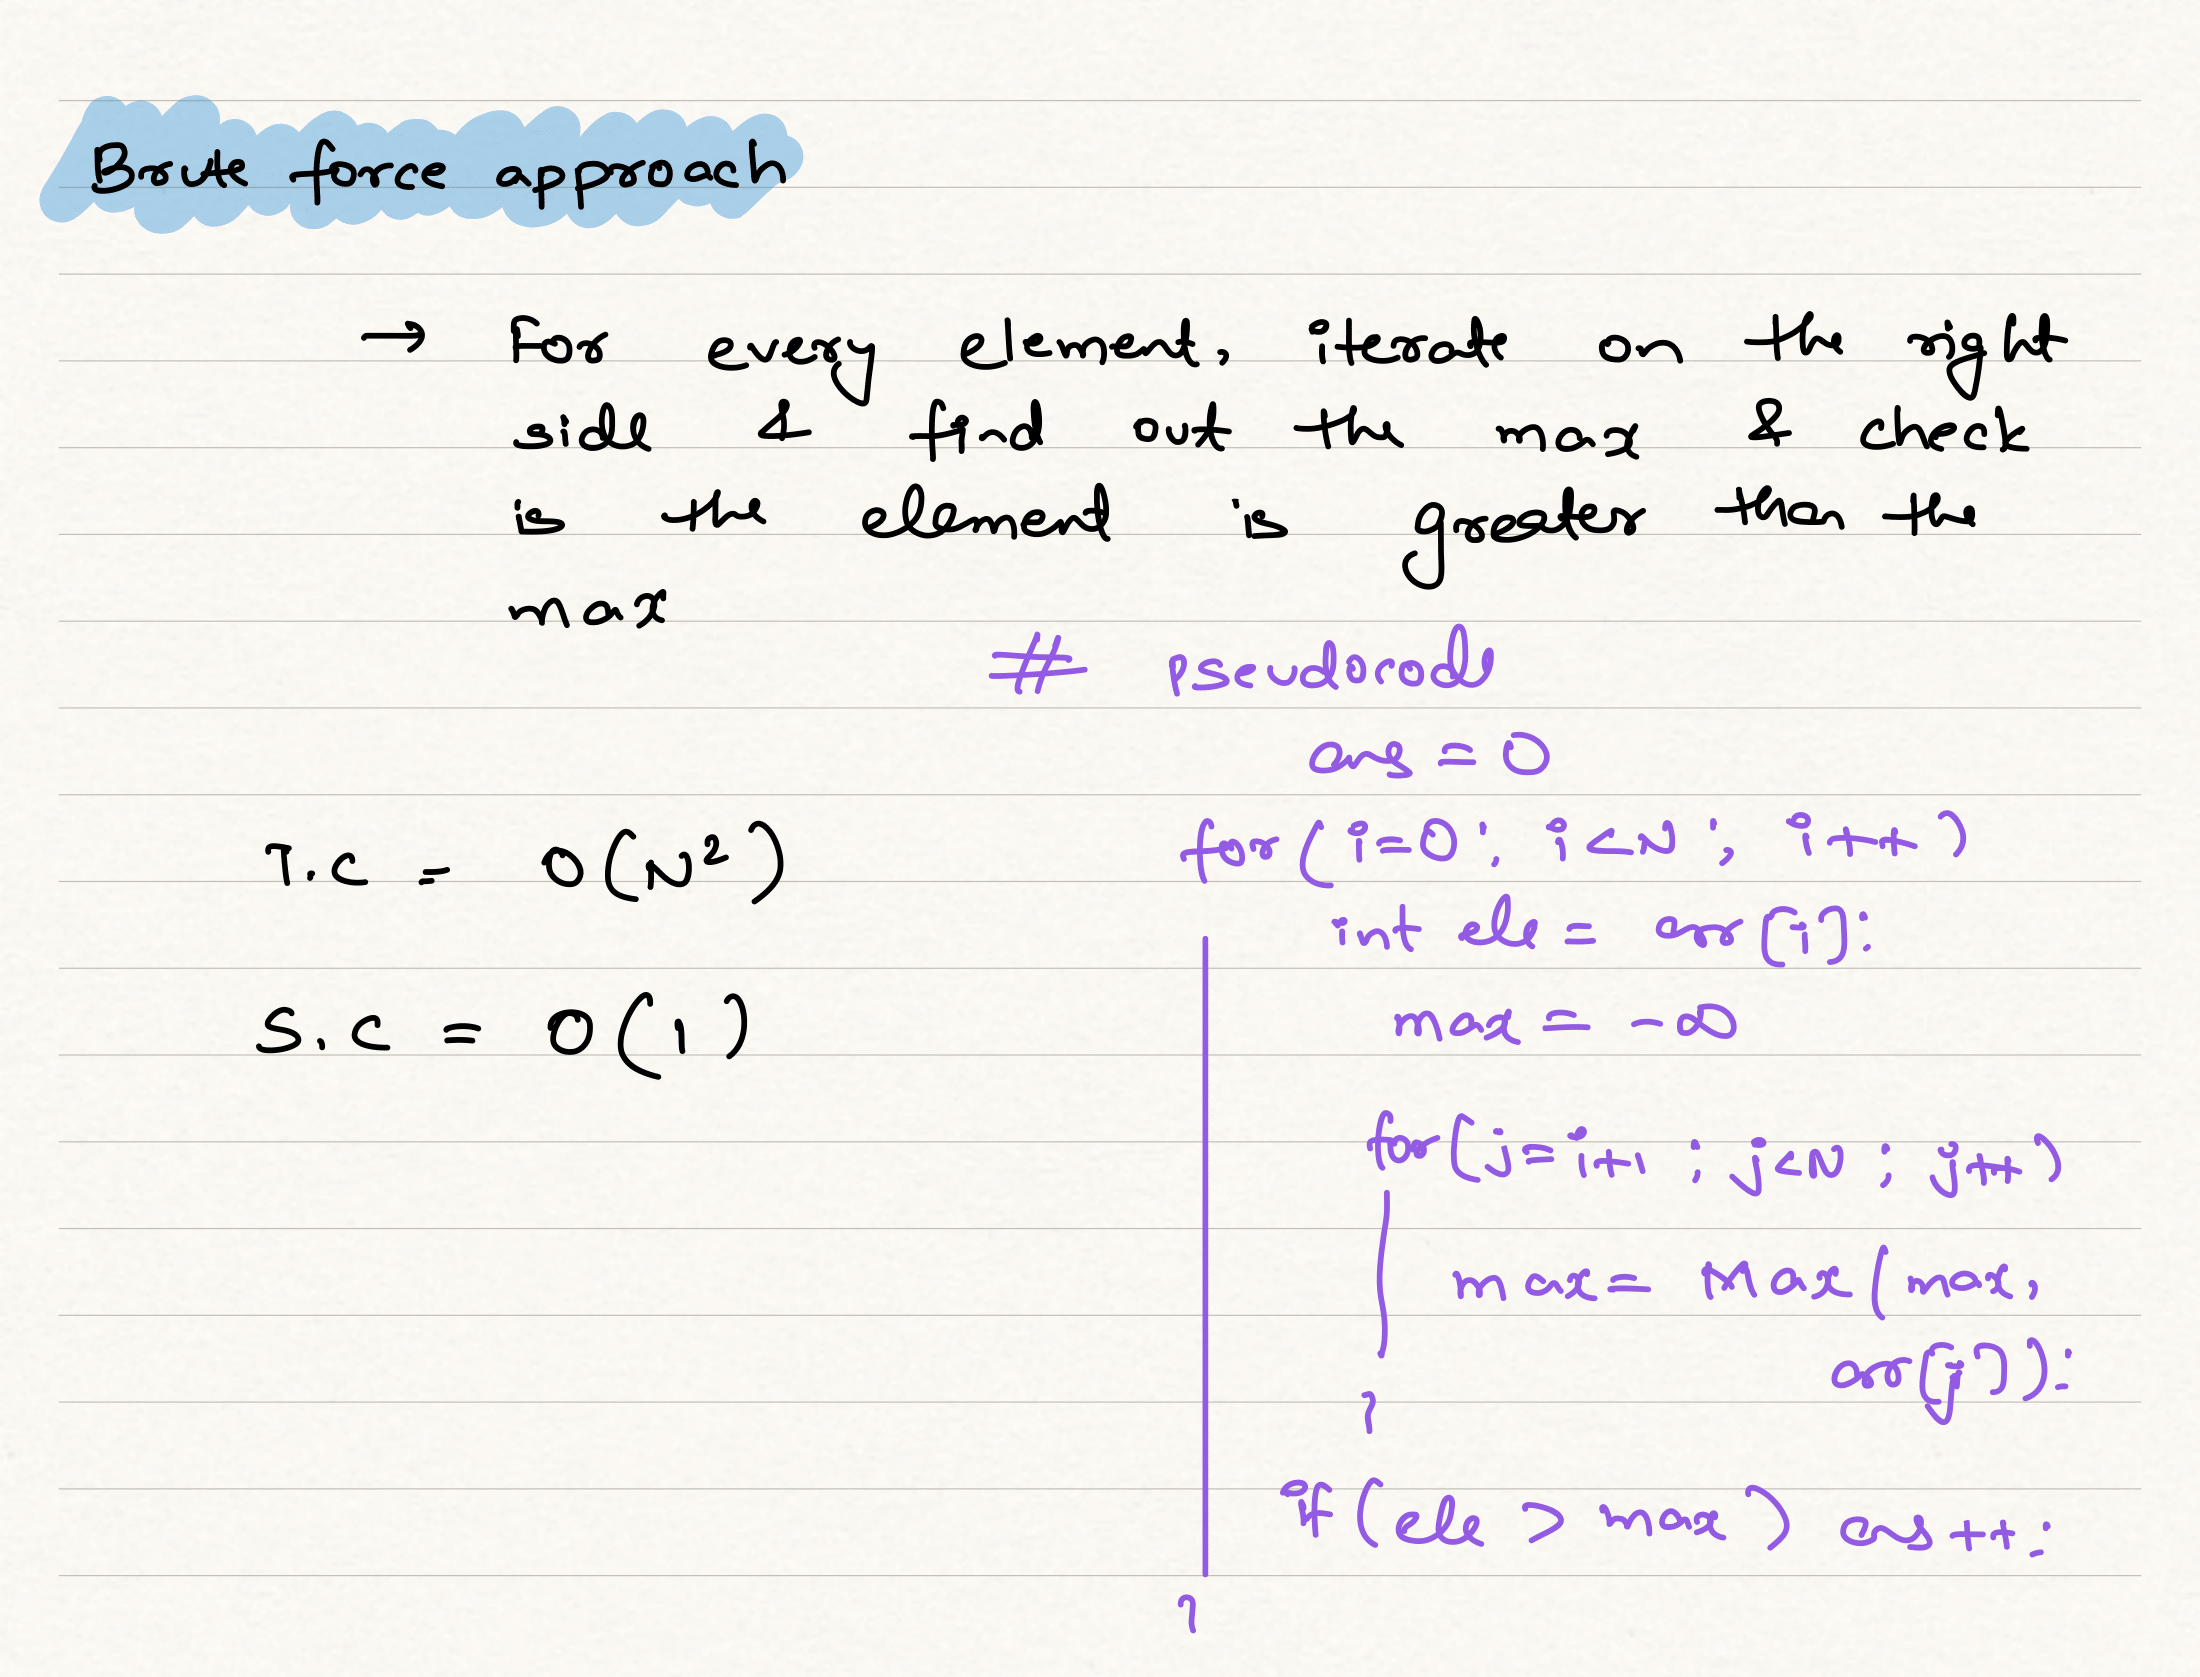 Brute force approach
→ For every element, iterate on the right
side & find out the max & check
is the element is greater than the
max
# pseudocode
ans = 0
T.C = O(N²)
for(i=0; i<N; i++)
int ele = arr[i];
max = -∞
S.C = O(1)
for(j=i+1; j<N; j++)
max = Max(max,
arr[j]);
}
if(ele > max) ans++;
}